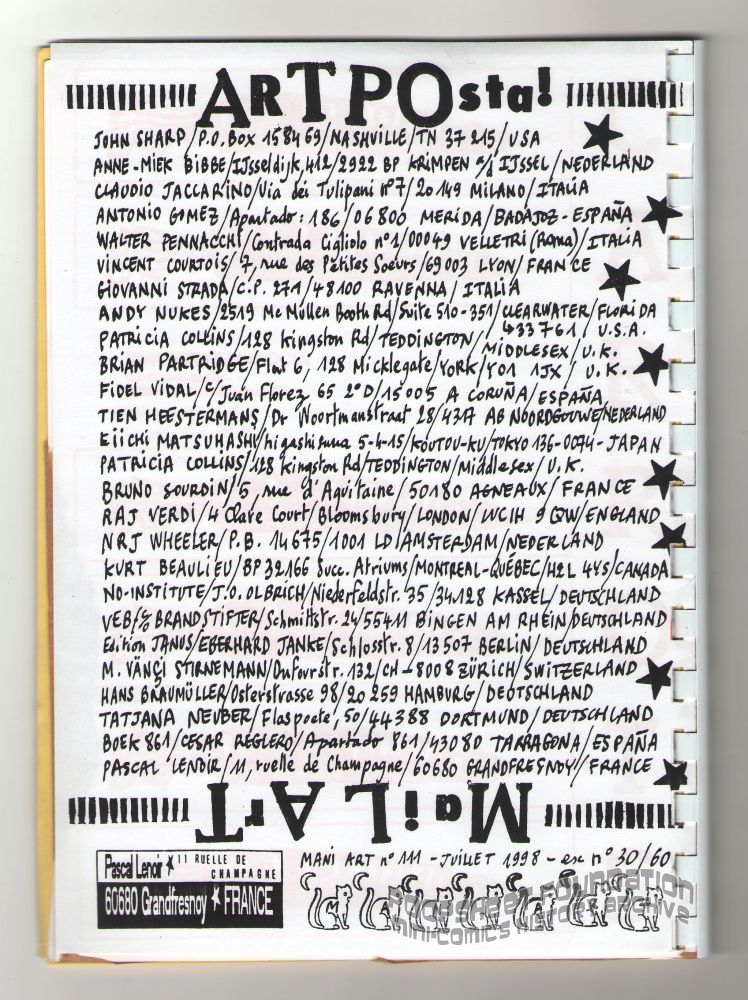 ArT POsta!
JOHN SHARP/P.O.Box 158469/NASHVILLE/TN 37215/USA
ANNE-MIEK BIBBE/IJsseldijk,412/2922 BP KRIMPEN a/d IJSSEL/NEDERLAND
CLAUDIO JACCARINO/Via dei Tulipani n°7/20149 MILANO/ITALIA
ANTONIO GOMEZ/Apartado: 186/06800 MERIDA/BADAJOZ-ESPAÑA
WALTER PENNACCHI/Contrada Cigliolo n°1/00049 VELLETRI (Roma)/ITALIA
VINCENT COURTOIS/7, rue des Petites Soeurs/69003 LYON/FRANCE
GIOVANNI STRADA/C.P. 271/48100 RAVENNA/ITALIA
ANDY NUKES/2519 Mc Mullen Booth Rd/Suite 510-351/CLEARWATER/FLORIDA
433761/U.S.A.
PATRICIA COLLINS/128 Kingston Rd/TEDDINGTON/MIDDLESEX/U.K.
BRIAN PARTRIDGE/Flat 6, 128 Micklegate/YORK/YO1 1JX/U.K.
FIDEL VIDAL/c/Juan Florez 65 2°D/15005 A CORUÑA/ESPAÑA
TIEN HEESTERMANS/Dr Woortmanstraat 28/4317 AB NOORDGOUWE/NEDERLAND
Eiichi MATSUHASHI/higashisuna 5-4-15/KOUTOU-KU/TOKYO 136-0074-JAPAN
PATRICIA COLLINS/128 Kingston Rd/TEDDINGTON/Middlesex/U.K.
BRUNO SOURDIN/5, rue d'Aquitaine/50180 AGNEAUX/FRANCE
RAJ VERDI/4 Clare Court/Bloomsbury/LONDON/WC1H 9QW/ENGLAND
NRJ WHEELER/P.B. 14675/1001 LD/AMSTERDAM/NEDERLAND
KURT BEAULIEU/BP 32166 Succ. Atriums/MONTREAL-QUÉBEC/H2L 4Y5/CANADA
NO-INSTITUTE/J.O.OLBRICH/Niederfeldstr. 35/34128 KASSEL/DEUTSCHLAND
VEB/c/o BRANDSTIFTER/Schmittstr. 24/55411 BINGEN AM RHEIN/DEUTSCHLAND
Edition JANUS/EBERHARD JANKE/Schlosstr. 8/13507 BERLIN/DEUTSCHLAND
M. VÄNÇI STIRNEMANN/Dufourstr. 132/CH-8008 ZÜRICH/SWITZERLAND
HANS BRAUMÜLLER/Osterstrasse 98/20259 HAMBURG/DEUTSCHLAND
TATJANA NEUBER/Flaspoete, 50/44388 DORTMUND/DEUTSCHLAND
BOEK 861/CESAR REGLERO/Apartado 861/43080 TARRAGONA/ESPAÑA
PASCAL LENOIR/11, ruelle de Champagne/60680 GRANDFRESNOY/FRANCE
MaiL ArT
Pascal Lenoir ★ 11 RUELLE DE CHAMPAGNE
60680 Grandfresnoy ★ FRANCE
MANI ART n° 111 - JUILLET 1998 - ex n° 30/60